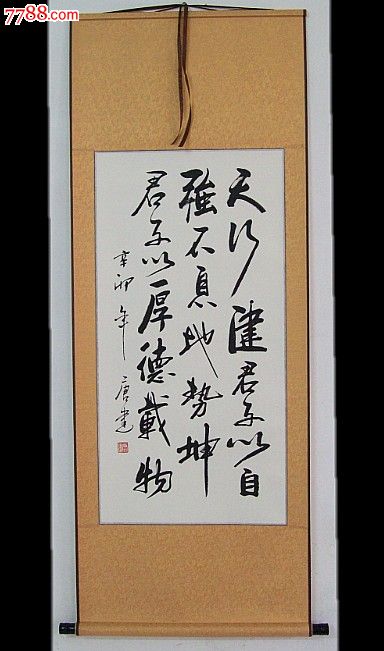 7788.com
天行健君子以自
强不息地势坤
君子以厚德载物
辛卯年 唐建